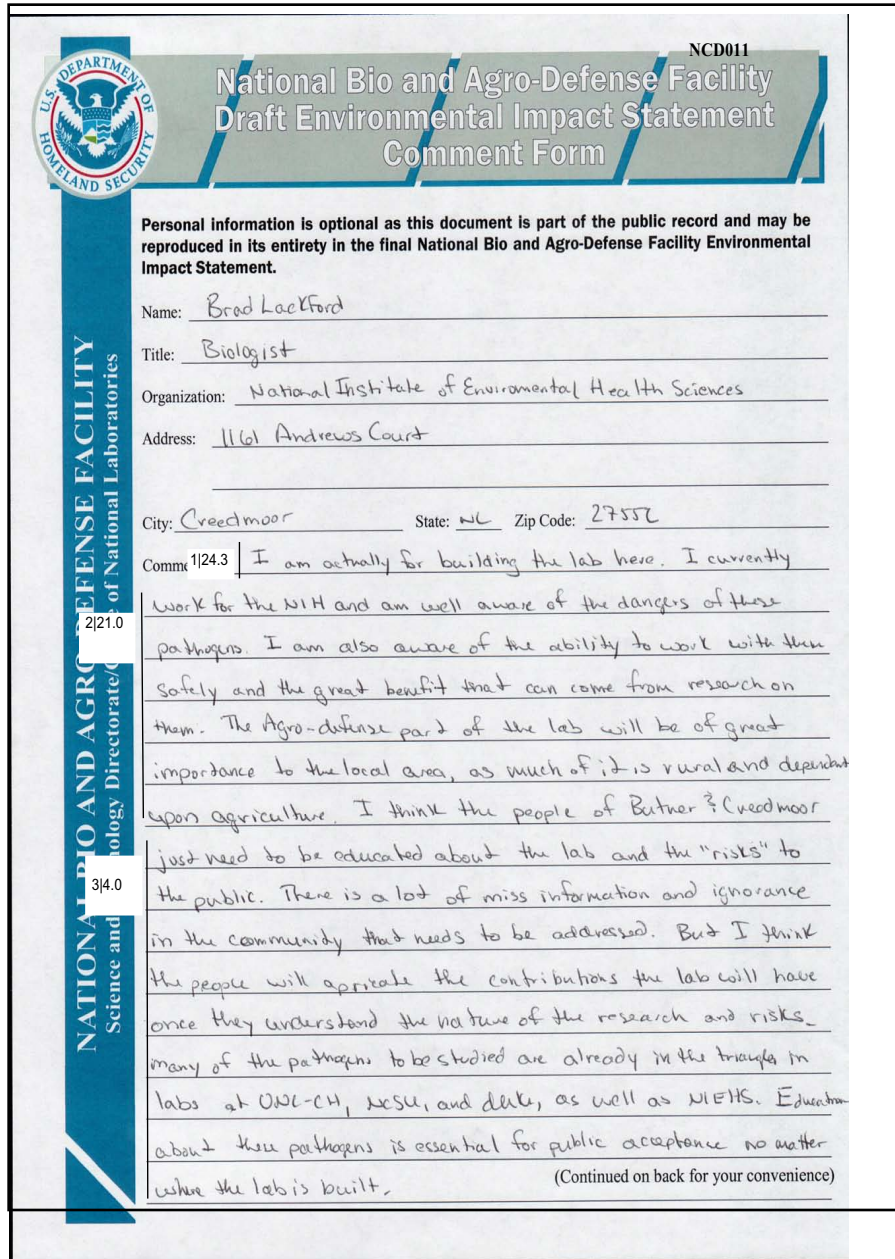 NCD011
U.S. DEPARTMENT OF HOMELAND SECURITY
National Bio and Agro-Defense Facility
Draft Environmental Impact Statement
Comment Form
Personal information is optional as this document is part of the public record and may be
reproduced in its entirety in the final National Bio and Agro-Defense Facility Environmental
Impact Statement.
Name: Brad Lackford
Title: Biologist
Organization: National Institute of Enviromental Health Sciences
Address: 1161 Andrews Court
City: Creedmoor State: NC Zip Code: 27552
Comme 1|24.3 I am actually for building the lab here. I currently
work for the NIH and am well aware of the dangers of these
2|21.0
pathogens. I am also aware of the ability to work with them
safely and the great benefit that can come from research on
them. The Agro-defense part of the lab will be of great
importance to the local area, as much of it is rural and dependant
upon agriculture. I think the people of Butner & Creedmoor
just need to be educated about the lab and the "risks" to
3|4.0
the public. There is a lot of miss information and ignorance
in the community that needs to be addressed. But I think
the people will apricate the contributions the lab will have
once they understand the nature of the research and risks.
many of the pathogens to be studied are already in the triangle in
labs at UNC-CH, NCSU, and duke, as well as NIEHS. Education
about these pathogens is essential for public acceptance no matter
where the lab is built.
(Continued on back for your convenience)
NATIONAL BIO AND AGRO-DEFENSE FACILITY
Science and nology Directorate/ e of National Laboratories